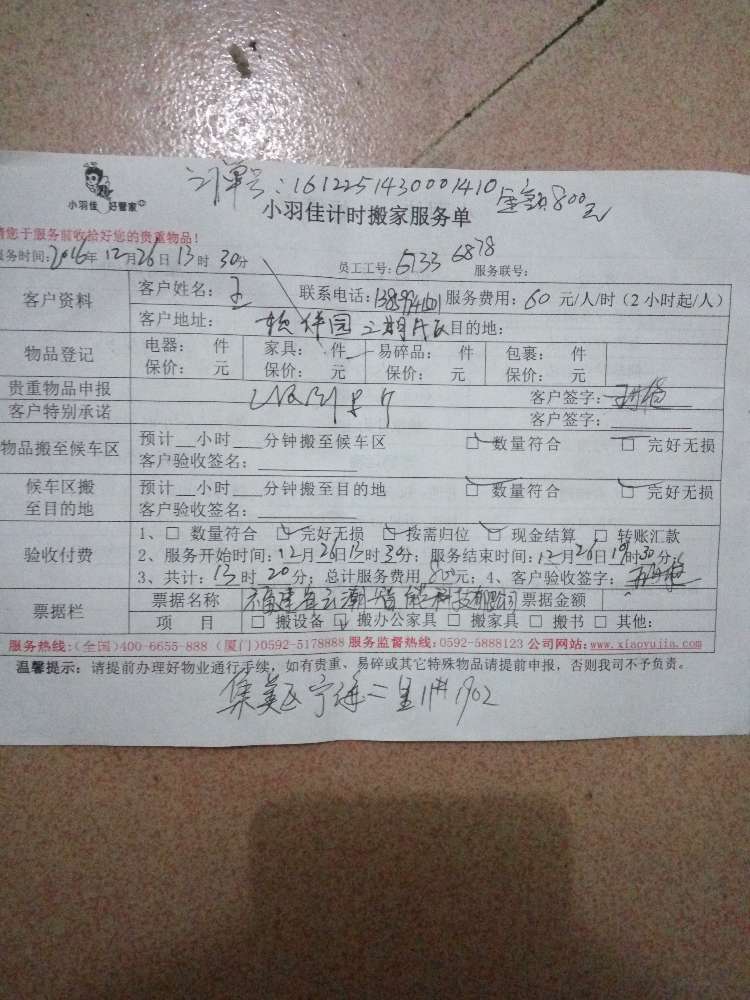 订单号：1612251430001410 金额800元
小羽佳 好管家
小羽佳计时搬家服务单
请您于服务前收拾好您的贵重物品！
服务时间：2016年12月26日13时30分 员工工号：5733 6878 服务联号：
客户资料 客户姓名：王 联系电话： 服务费用：60元/人/时（2小时起/人）
客户地址：软件园三期 目的地：
物品登记 电器： 件 家具： 件 易碎品： 件 包裹： 件
保价： 元 保价： 元 保价： 元 保价： 元
贵重物品申报 客户签字：
客户特别承诺 客户签字：
物品搬至候车区 预计__小时___分钟搬至候车区 □数量符合 □完好无损
客户验收签名：
候车区搬至目的地 预计__小时___分钟搬至目的地 □数量符合 □完好无损
客户验收签名：
验收付费 1、□ 数量符合 □完好无损 □按需归位 □ 现金结算 □ 转账汇款
2、服务开始时间：12月26日13时30分；服务结束时间：12月26日19时30分；
3、共计：13时20分；总计服务费用800元；4、客户验收签字：
票据栏 票据名称 福建省云潮智能科技有限公司 票据金额
项 目 □ 搬设备 □ 搬办公家具 □ 搬家具 □ 搬书 □ 其他：
服务热线：(全国)400-6655-888 (厦门)0592-5178888 服务监督热线：0592-5888123 公司网站：www.xiaoyujia.com
温馨提示：请提前办理好物业通行手续，如有贵重、易碎或其它特殊物品请提前申报，否则我司不予负责。
集美区宁 二里11# 1902